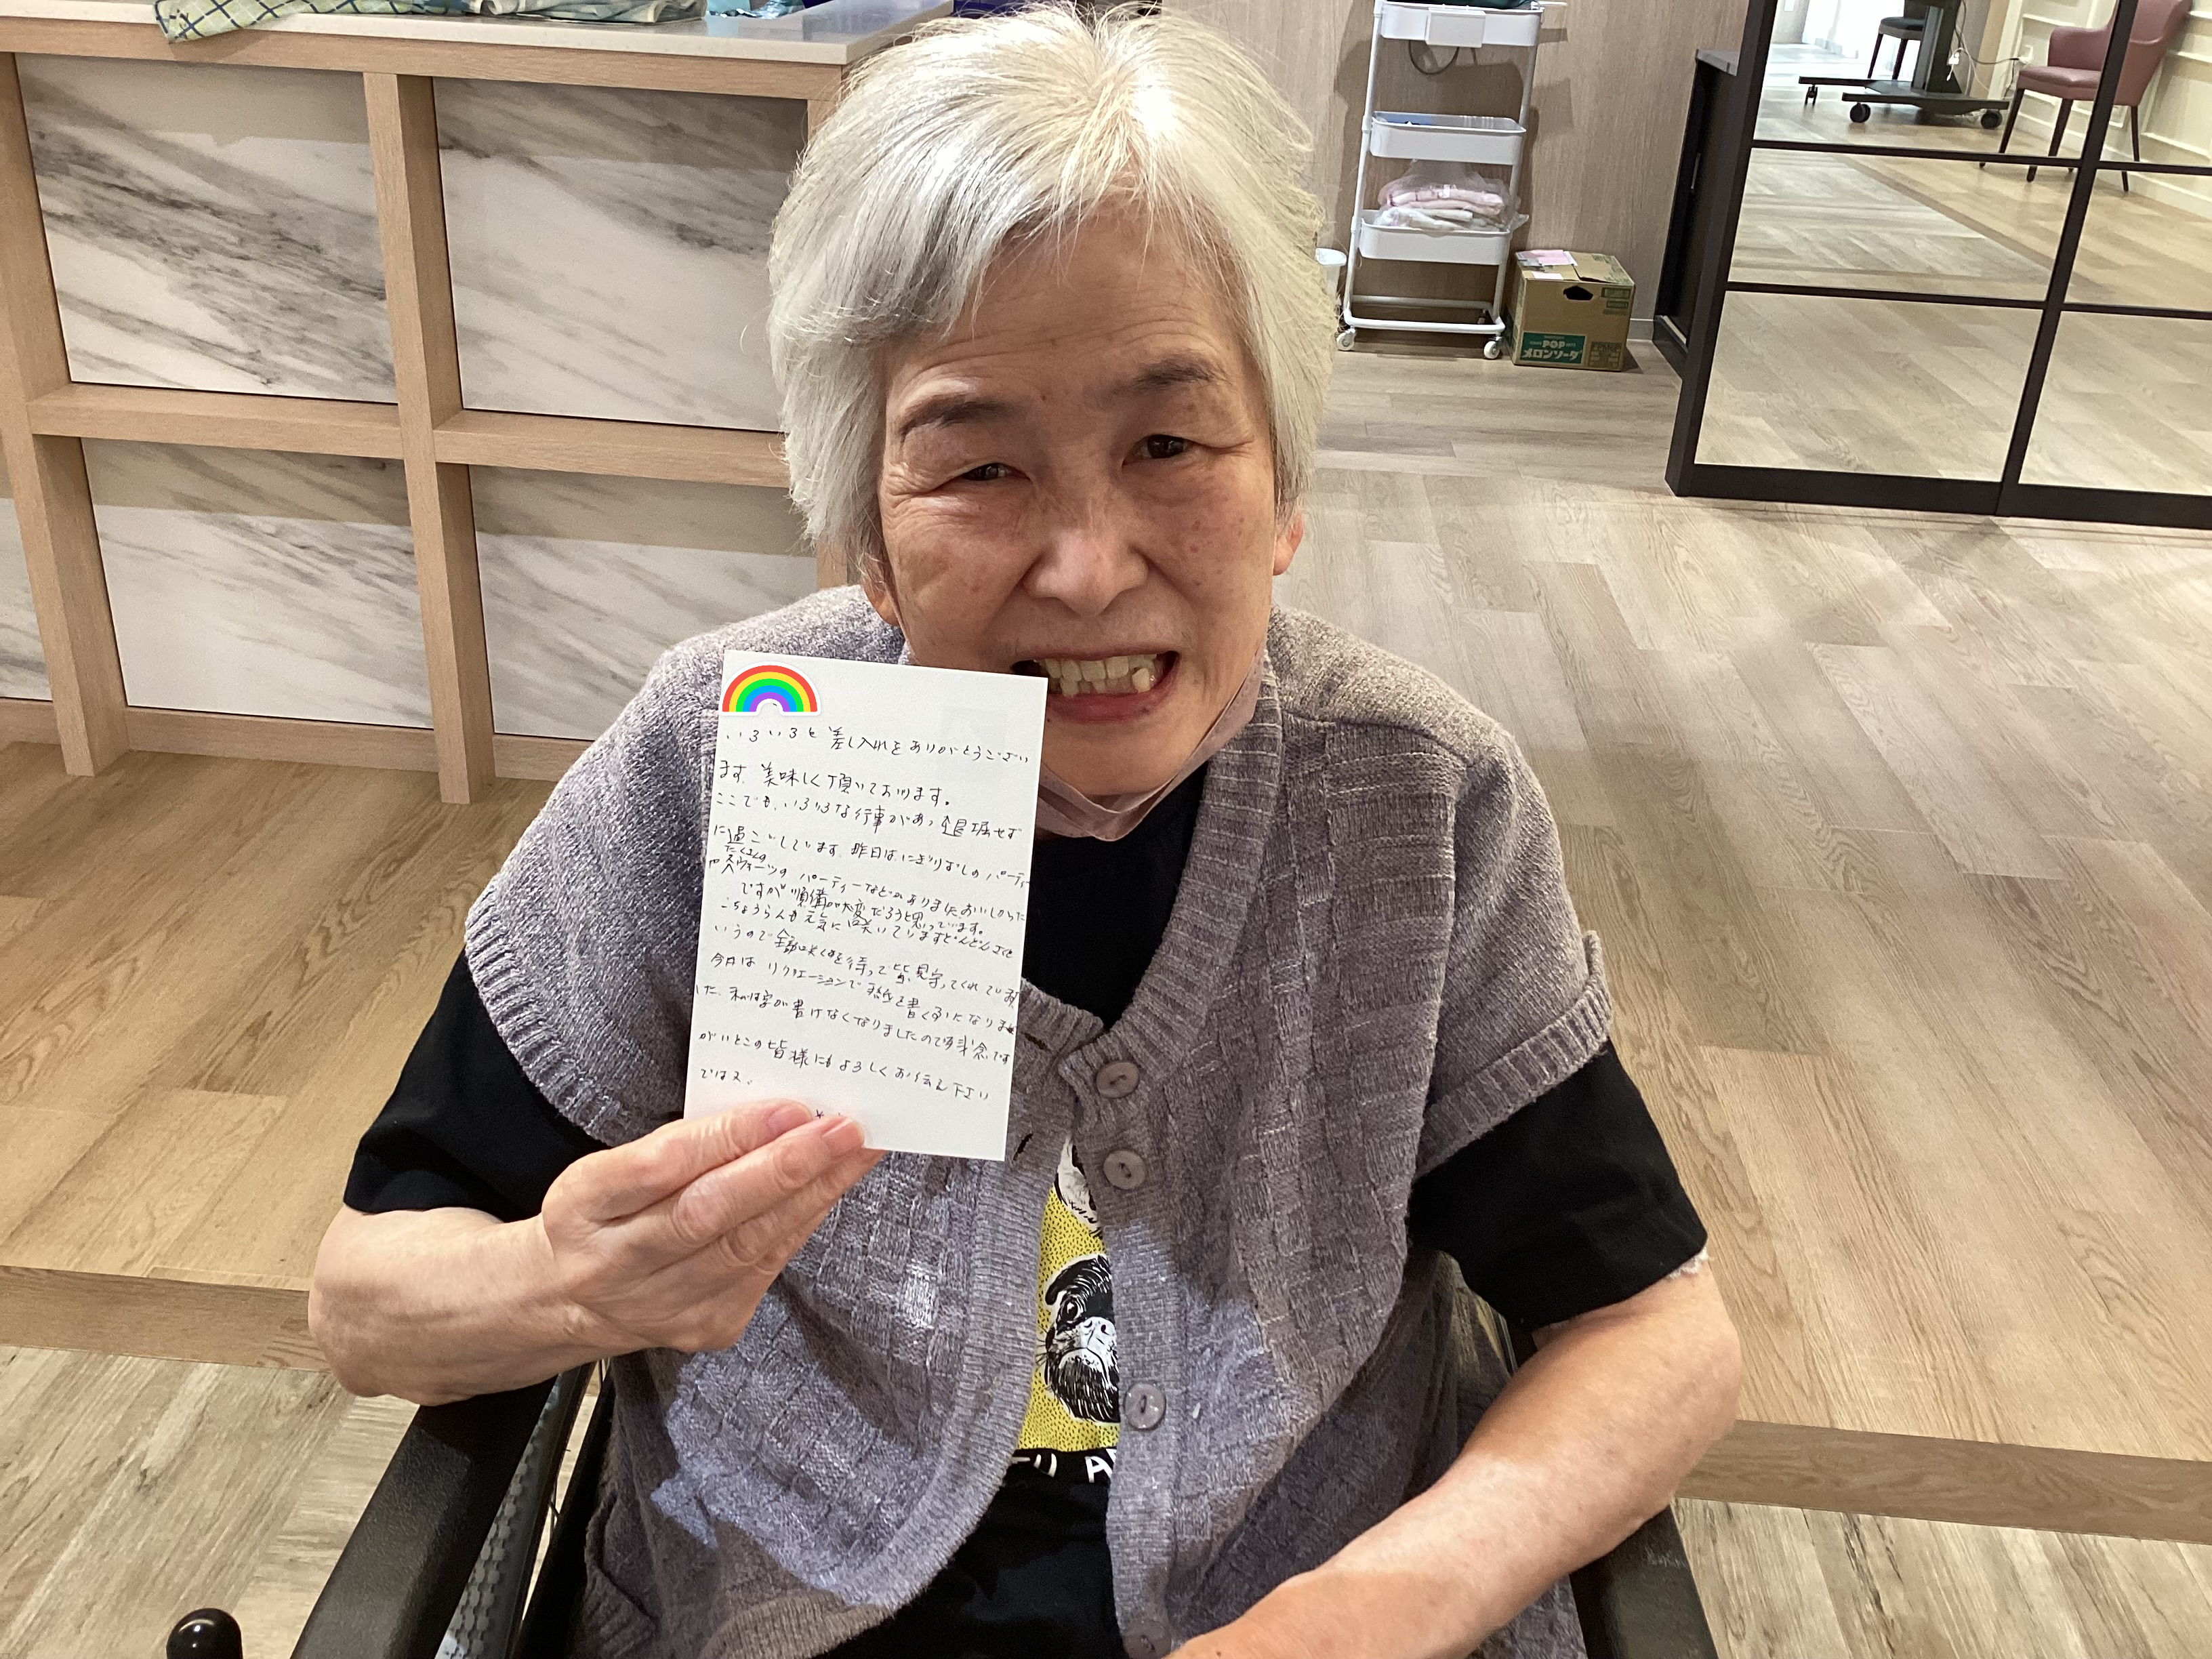 いろいろと差し入れをありがとうござい
ます。美味しく頂いております。
ここでも、いろいろな行事があって退屈せず
に過ごしています。昨日は、にぎりずしのパーティー
たくさんの
やスウィーツのパーティーなどがありましたおいしかった
ですが準備が大変だろうと思っています。
こちょうらんも元気に咲いていますどんどんさくと
いうので全部咲くのを待って皆見守ってくれています
今日はリクリエーションで手紙を書く事になりまし
た、私は字が書けなくなりましたので残念です
がいとこの皆様にもよろしくお伝え下さい
ではまた
POP
メロンソーダ